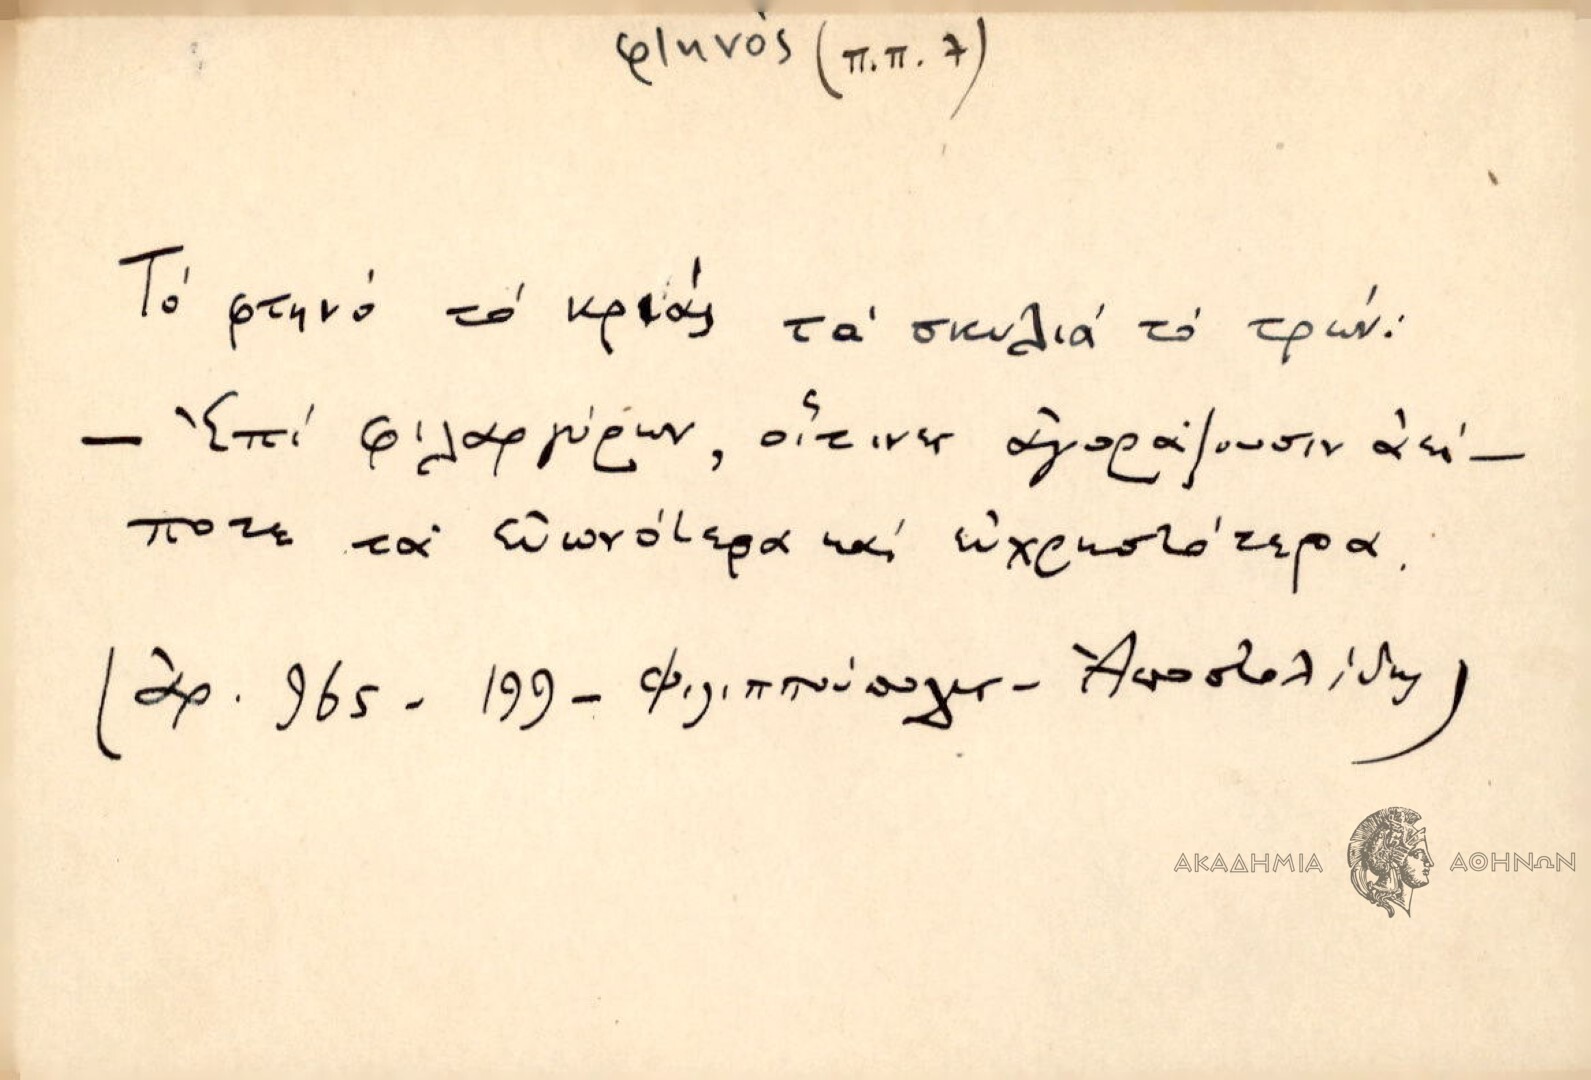 φτηνός (π.π. 7)
Τό φτηνό τό κριάς τά σκυλιά τό τρών:
— Ἐπί φιλαργύρων, οἵτινες ἀγοράζουσιν ἀεί-
ποτε τά εὐωνότερα καί εὐχρηστότερα.
(ἀρ. 965 - 199 - Φιλιππούπολις - Ἀποστολίδης)
ΑΚΑΔΗΜΙΑ ΑΘΗΝΩΝ